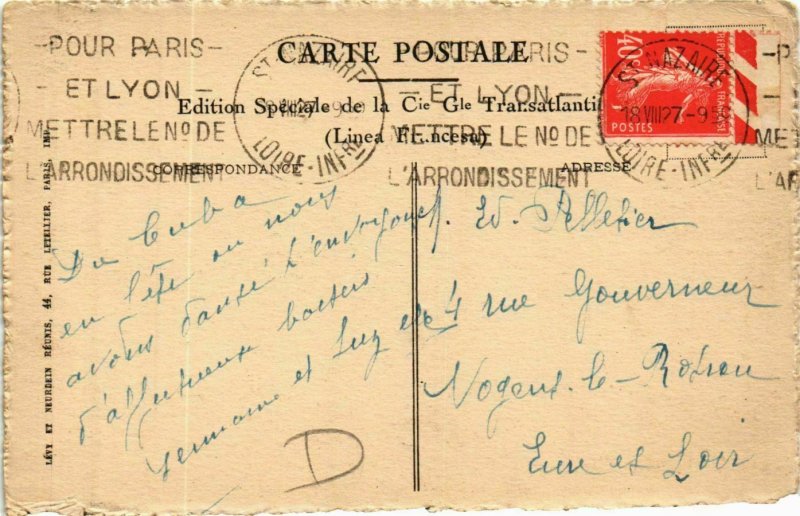 POUR PARIS
ET LYON
METTRE LE No DE
L'ARRONDISSEMENT
ST NAZAIRE
18 VIII 27
LOIRE-INFRE
CARTE POSTALE
Edition Spéciale de la Cie Gle Transatlanti
(Linea Francesa)
PARIS
ET LYON
METTRE LE No DE
L'ARRONDISSEMENT
40c
REPUBLIQUE FRANÇAISE
POSTES
ST NAZAIRE
18 VIII 27-9
LOIRE-INFRE
CORRESPONDANCE
ADRESSE
Du Cuba
en l'été ou nous
avons dansé
d'affectueux baisers
Germaine et
D
Ed. Pelletier
4 rue Gouverneur
Nogent-le-Rotrou
Eure et Loir
LÉVY ET NEURDEIN RÉUNIS, 44, RUE LETELLIER, PARIS, IMP.